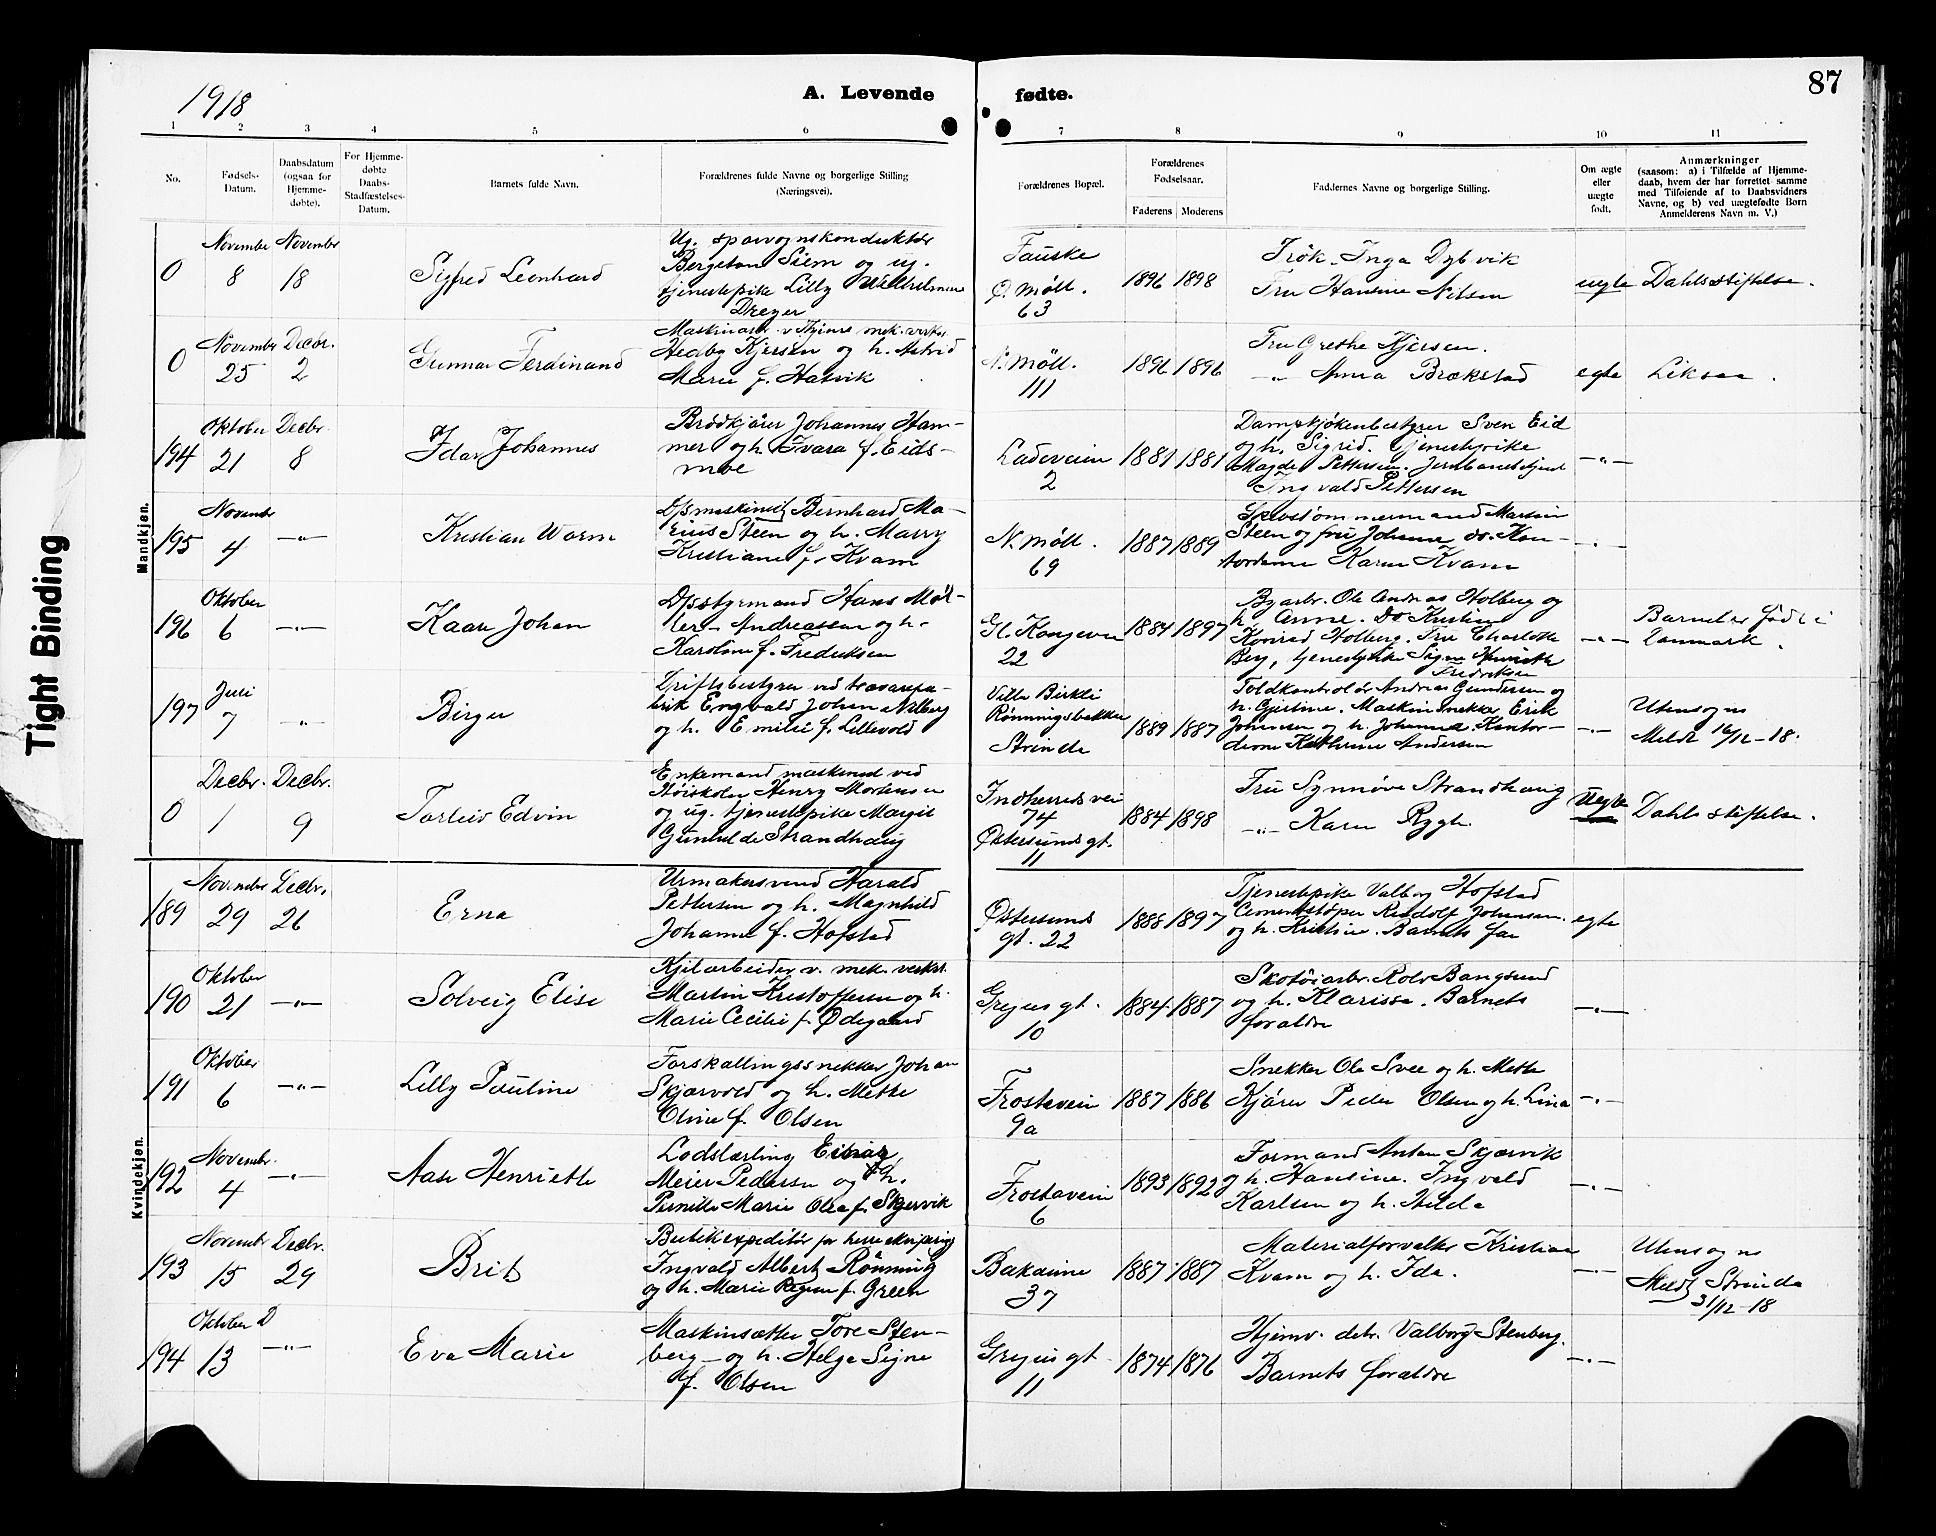 1918
A. Levende
fødte.
87
1 2 3 4 5 6 7 8 9 10 11
No.
Fødsels-
Datum.
Daabsdatum
(ogsaa for
Hjemme-
døbte).
For Hjemme-
døbte
Daabs-
Stadfæstelses-
Datum.
Barnets fulde Navn.
Forældrenes fulde Navne og borgerlige Stilling
(Næringsvei).
Forældrenes Bopæl.
Forældrenes
Fødselsaar.
Faderens Moderens
Faddernes Navne og borgerlige Stilling.
Om ægte
eller
uægte
født.
Anmærkninger
(saasom: a) i Tilfælde af Hjemme-
daab, hvem der har forrettet samme
med Tilføiende af to Daabsvidners
Navne, og b) ved uægtefødte Børn
Anmelderens Navn m. V.)
Tight Binding
Mandkjøn.
0
November
8
November
18
Sigfred Leonhard
Ug. sporvognskonduktør
Bergeton Siem og ug.
tjenestepike Lilly
Dreyer
Fauske
Ø. Møll.
63
1896 1898
Frøk. Inga Dybvik
Fru Hansine Nilsen
uegte
Dahls stiftelse.
0
November
25
Decbr.
2
Gunnar Ferdinand
mek. verks.
Hedby Kjersen og h. Astrid
Marie f. Hatvik
N. Møll.
111
1896 1896
Fru Grethe Kjersen.
-"- Anna Brækstad
egte
194
Oktober
21
Decbr.
8
Idar Johannes
Brødkjører Johannes Ham-
mer og h. Ivara f. Eids-
moe
Ladeveien
2
1881 1881
Dampkjøkenbestyrer Sven Eid
og h. Sigrid. Tjenestepike
Magda Pettersen. Jernbanebetjent
Ingvald Pettersen
-"-
195
Novembr
4
-"-
Kristian Warm
Bernhard Ma-
rius Steen og h. Marry
Kristiane f. Kvam
N. Møll.
69
1887 1889
Skibstømmermand Martin
Steen og fru Johanne do. Kon-
tordame Karen Kvam
-"-
196
Oktober
6
-"-
Kaare Johan
Dpsstyrmand Hans Møl-
ler- Andreassen og h.
Karoline f. Fredriksen
Gl. Kongevei
22
1884 1897
Byarbr. Ole Andreas Holberg og
h. Anne. Do Kristian
Konrad Holberg. Fru Charlotte
Berg, tjenestepike Signe Henriette
Fredriksen
-"-
Barnet er født i
Danmark.
197
Juli
7
-"-
Birger
Driftsbestyrer ved trævarefa-
brik Engvald Johan Alberg
og h. Emilie f. Lillevold
Villa Birkli
Rønningsbakken
Strinda
1889 1887
Toldkontrolør Andreas Gundersen og
h. Gjertine. Maskinsnekker Erik
Johansen og h. Johanna. Kontor-
dame Kathrine Andersen
-"-
Utensogns
Meldt 16/12-18.
0
Decbr.
1
Decbr.
9
Torleiv Edvin
Enkemand maskinist ved
Høiskolen Henry Mortensen
og ug. tjenestepike Margit
Gunhilde Strandhaug
Indherredsvei
74
Østersundsgt.
11
1884 1898
Fru Synnøve Strandhaug
-"- Karen Rygh.
Uegte
Dahls stiftelse.
Kvindekjøn.
189
November
29
Decbr.
26
Erna
Urmakersvend Harald
Pettersen og h. Magnhild
Johanne f. Hofstad
Østersunds
gt. 22
1888 1897
Tjenestepike Valborg Hofstad
Cementstøper Rudolf Johansen
og h. Kristine. Barnets far
egte
190
Oktober
21
-"-
Solveig Elise
Kjelarbeider v. mek. verkst.
Martin Kristoffersen og h.
Marie Cecilie f. Ødegaard
Gregus gt.
10
1884 1887
Skotøiarbr. Rolv Bangsund
og h. Klarissa. Barnets
foraldre
-"-
191
Oktober
6
-"-
Lilly Pauline
Forskallingssnekker Johan
Skjærvold og h. Mette
Oline f. Olsen
Frostaveien
9a
1887 1886
Snekker Ole Svee og h. Mette
Kjører Peder Olsen og h. Lina
-"-
192
Novembr.
4
-"-
Aase Henriette
Lodslærling Einar
Meier Pedersen og h.
Pernille Marie Olea f. Skjervik
Frostaveien
6
1893 1892
Formand Anton Skjærvik
og h. Hansine. Ingvald
Karlsen og h. Hilda
-"-
193
November
15
Decbr.
29
Brit
Butikexpeditør for herreekvipering
Ingvald Albert Rønning
og h. Marie Regine f. Green
Bakaune
37
1887 1887
Materialforvalter Kristian
Kvam og h. Ida.
-"-
Utensogns
Meldt Strinda
31/12-18
194
Oktober
13
D
-"-
Eva Marie
Maskinsætter Tore Sten-
berg - og h. Helga Signe
f. Olsen
Gregus gt.
11
1874 1876
Hjemv. detr. Valborg Stenberg.
Barnets foraldre
-"-